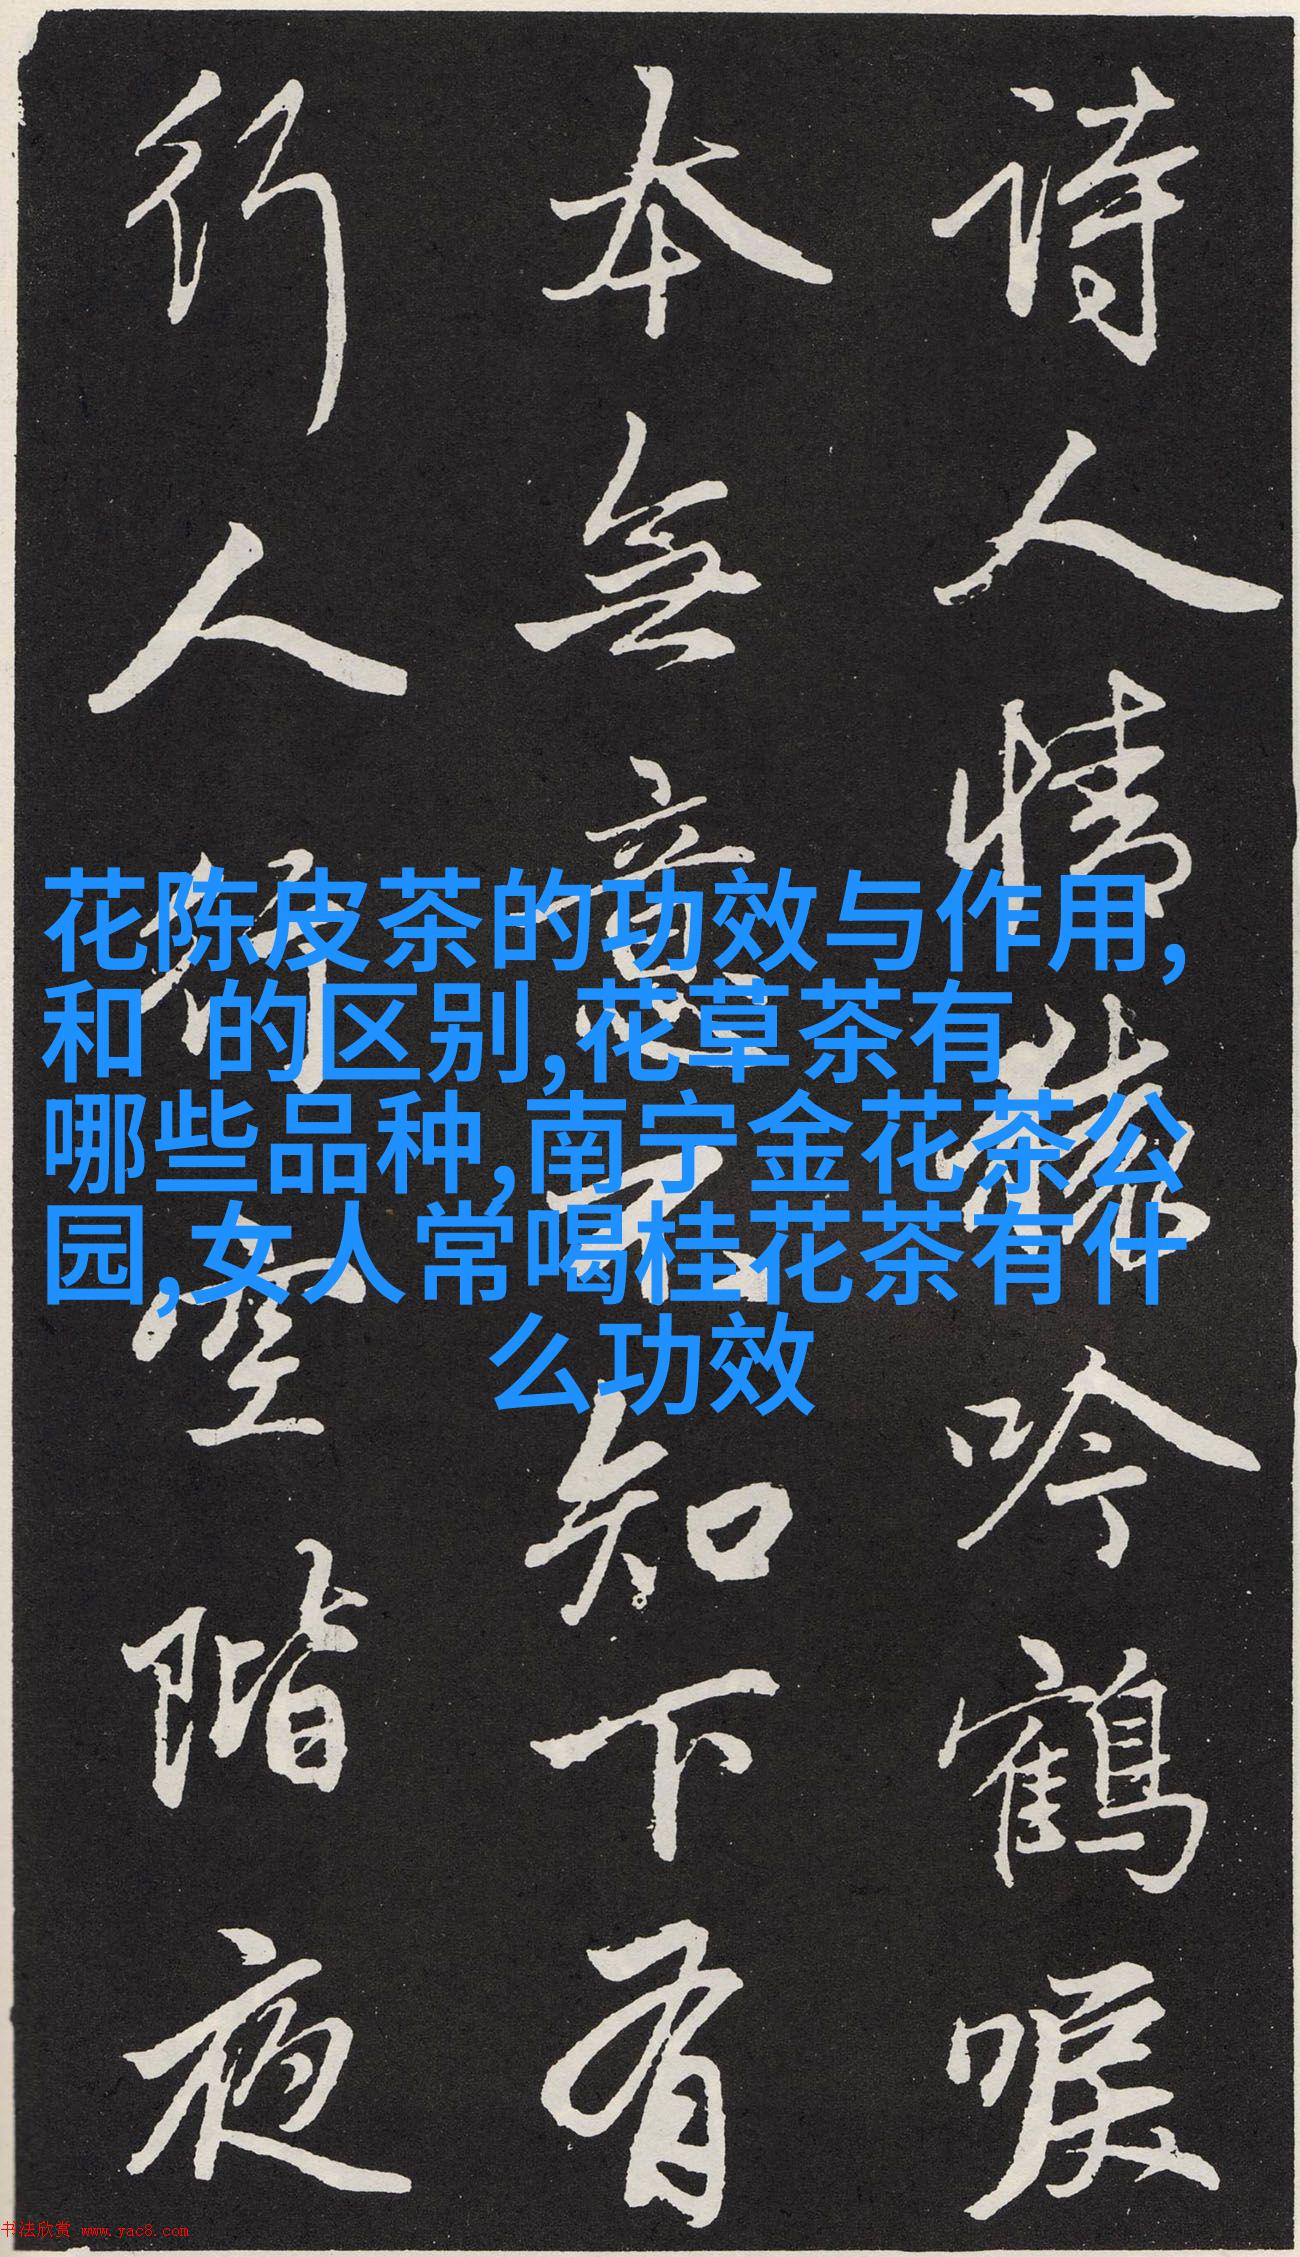 诗人情猿吟鹤唳
本无意不知下有
行人行空阶夜
花陈皮茶的功效与作用,
和 的区别,花草茶有
哪些品种,南宁金花茶公
园,女人常喝桂花茶有什
么功效
书法欣赏 www.yac8.com